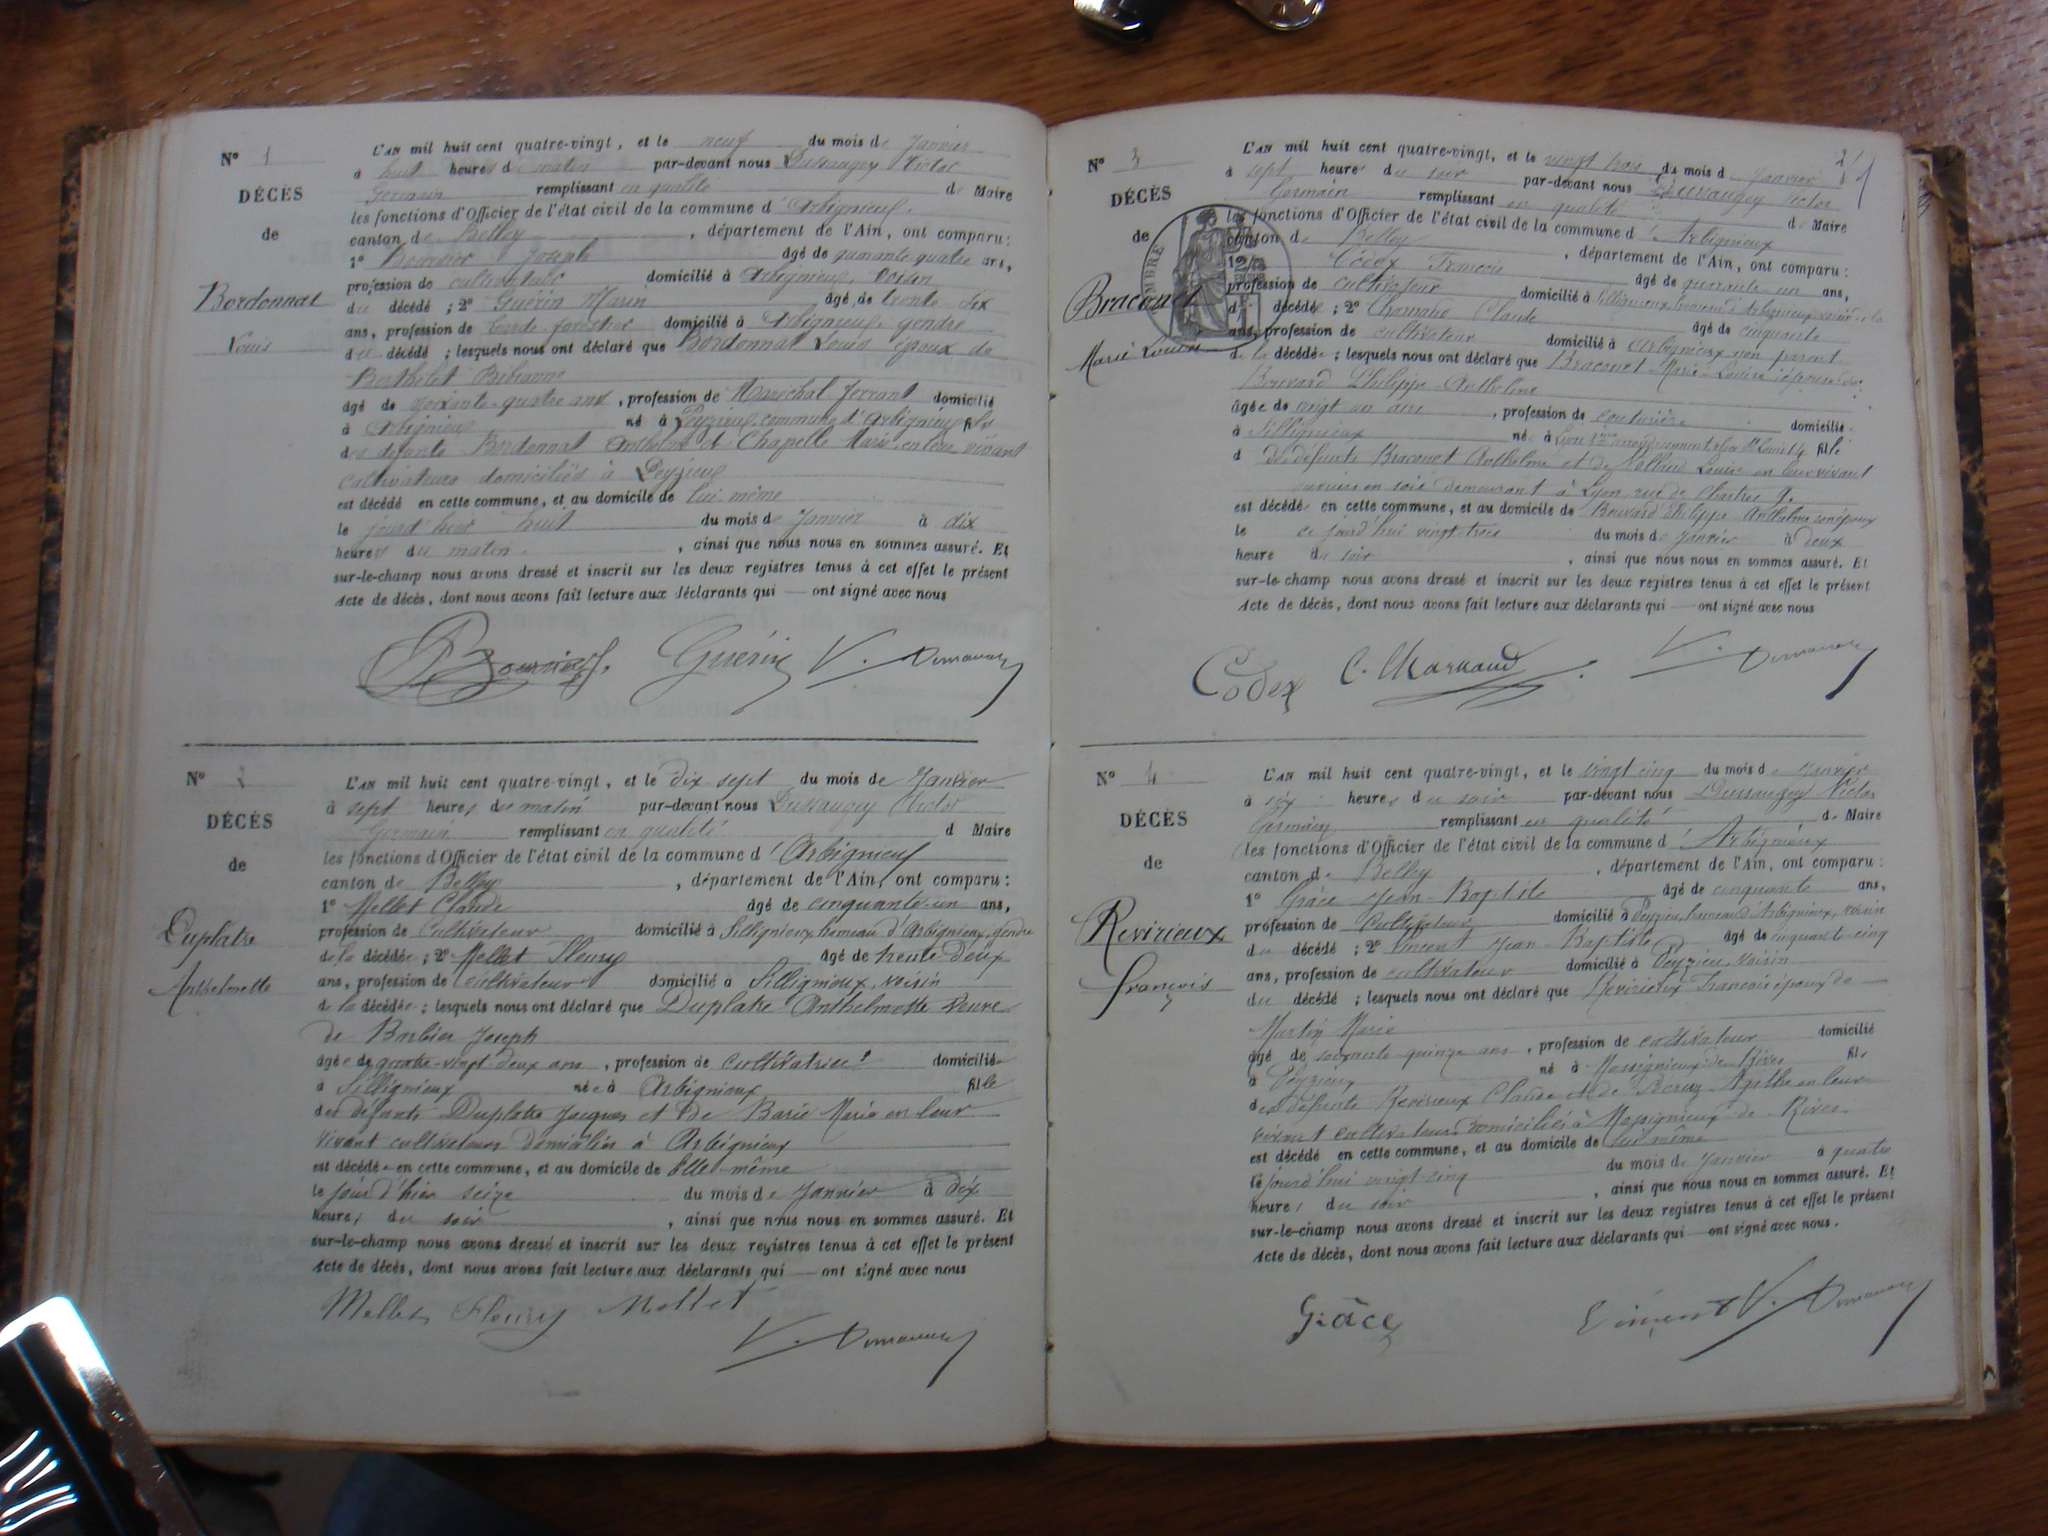 N° 1
DÉCÈS
de
Bordonnat
Louis
L'AN mil huit cent quatre-vingt, et le neuf du mois de Janvier
à huit heures du matin par-devant nous Dussaugey Victor
Germain remplissant en qualité de Maire
les fonctions d'Officier de l'état civil de la commune d'Arbignieu
canton de Belley, département de l'Ain, ont comparu:
1° Joseph âgé de quarante quatre ans,
profession de cultivateur domicilié à Arbignieu, voisin
du décédé; 2° Guérin Marin âgé de trente six
ans, profession de garde forestier domicilié à Arbignieu gendre
du décédé; lesquels nous ont déclaré que Bordonnat Louis époux de
Berthelet
âgé de soixante-quatre ans, profession de Maréchal ferrant domicilié
à Arbignieu né à Peyzieu commune d'Arbignieu fils
des défunts Bordonnat Anthelme et Chapelle Marie en leur vivant
cultivateurs domiciliés à Peyzieu
est décédé en cette commune, et au domicile de lui même
le jourd'hui huit du mois de Janvier à dix
heures du matin, ainsi que nous nous en sommes assuré. Et
sur-le-champ nous avons dressé et inscrit sur les deux registres tenus à cet effet le présent
Acte de décès, dont nous avons fait lecture aux déclarants qui — ont signé avec nous
Guérin V.
N° 2
DÉCÈS
de
Duplatre
Anthelmette
L'AN mil huit cent quatre-vingt, et le dix sept du mois de Janvier
à sept heures du matin par-devant nous Dussaugey Victor
Germain remplissant en qualité d Maire
les fonctions d'Officier de l'état civil de la commune d'Arbignieu
canton de Belley, département de l'Ain, ont comparu:
1° Mellet Claude âgé de cinquante-un ans,
profession de Cultivateur domicilié à Sillignieux hameau d'Arbignieux, gendre
de la décédée; 2° Mellet Fleury âgé de trente deux
ans, profession de Cultivateur domicilié à Sillignieux, voisin
de la décédée; lesquels nous ont déclaré que Duplatre Anthelmette veuve
de Barbier Joseph
âgée de quatre-vingt deux ans, profession de cultivatrice domiciliée
à Sillignieux née à Arbignieux fille
des défunts Duplatre Jacques et de Marie en leur
vivant cultivateurs domiciliés à Arbignieux
est décédée en cette commune, et au domicile de Elle même
le jour d'hier seize du mois de Janvier à dix
heures du soir, ainsi que nous nous en sommes assuré. Et
sur-le-champ nous avons dressé et inscrit sur les deux registres tenus à cet effet le présent
Acte de décès, dont nous avons fait lecture aux déclarants qui — ont signé avec nous
Mellet Fleury Mellet
V.
N° 3
DÉCÈS
de
Braconet
Marie Louise
L'AN mil huit cent quatre-vingt, et le vingt trois du mois d Janvier
à sept heures du soir par-devant nous Dussaugey Victor
Germain remplissant en qualité de Maire
les fonctions d'Officier de l'état civil de la commune d'Arbignieux
canton de Belley, département de l'Ain, ont comparu:
Codex François âgé de quarante-un ans,
profession de cultivateur domicilié à Sillignieux, hameau d'Arbignieux voisin de la
décédée; 2° Claude âgé de cinquante
ans, profession de cultivateur domicilié à Arbignieux non parent
de la décédée; lesquels nous ont déclaré que Braconet Marie Louise épouse de
Bouvard Philippe Anthelme
âgée de vingt un ans, profession de couturière domicilié
à Sillignieux née à Lyon fille
d de défunts Braconet Anthelme et de Louise en leur vivant
en soie demeurant à Lyon rue de Chartres 9.
est décédée en cette commune, et au domicile de Bouvard Philippe Anthelme son époux
le ce jourd'hui vingt trois du mois de Janvier à deux
heure du soir, ainsi que nous nous en sommes assuré. Et
sur-le-champ nous avons dressé et inscrit sur les deux registres tenus à cet effet le présent
Acte de décès, dont nous avons fait lecture aux déclarants qui — ont signé avec nous
Codex C. V.
N° 4
DÉCÈS
de
Revirieux
François
L'AN mil huit cent quatre-vingt, et le vingt cinq du mois de Janvier
à six heures du soir par-devant nous Dussaugey Victor
Germain remplissant en qualité de Maire
les fonctions d'Officier de l'état civil de la commune d'Arbignieux
canton de Belley, département de l'Ain, ont comparu:
1° Grâce Jean-Baptiste âgé de cinquante ans,
profession de Cultivateur domicilié à Peyzieu, hameau d'Arbignieux, voisin
du décédé; 2° Vincent Jean-Baptiste âgé de cinquante-cinq
ans, profession de cultivateur domicilié à Peyzieu, voisin
du décédé; lesquels nous ont déclaré que Revirieux François époux de
Martin Marie
âgé de soixante quinze ans, profession de cultivateur domicilié
à Peyzieu né à Massignieux de Rives fils
des défunts Revirieux Claude et de Agathe en leur
vivant cultivateurs domiciliés à Massignieux de Rives
est décédé en cette commune, et au domicile de lui même
le jourd'hui vingt-cinq du mois de Janvier à quatre
heures du soir, ainsi que nous nous en sommes assuré. Et
sur-le-champ nous avons dressé et inscrit sur les deux registres tenus à cet effet le présent
Acte de décès, dont nous avons fait lecture aux déclarants qui — ont signé avec nous.
Grâce Vincent V.